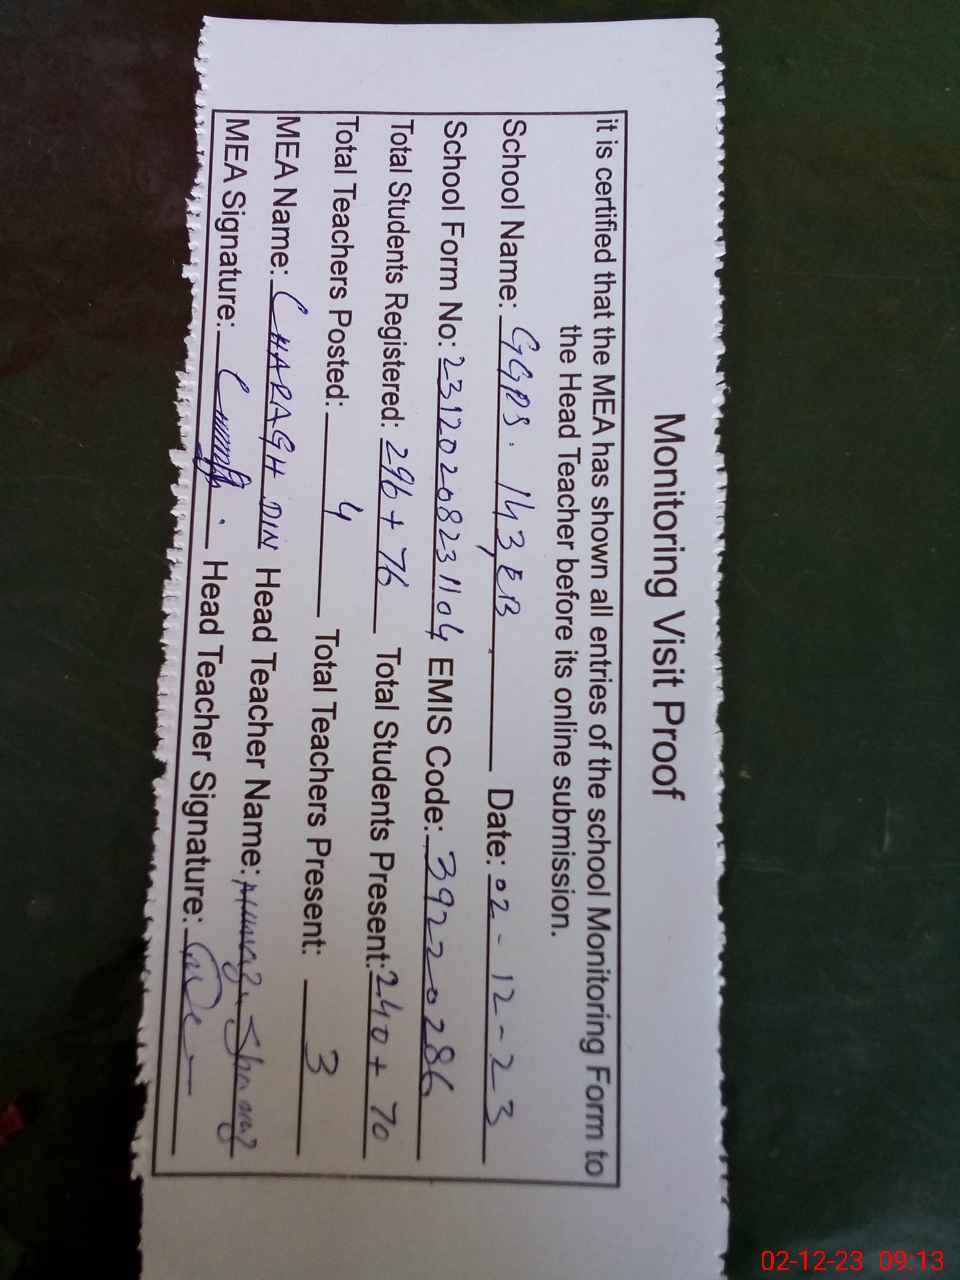 Monitoring Visit Proof
it is certified that the MEA has shown all entries of the school Monitoring Form to
the Head Teacher before its online submission.
School Name: GGPS. 143, EB Date: 02-12-23
School Form No: 23120208231104 EMIS Code: 39220286
Total Students Registered: 296+76 Total Students Present: 240+70
Total Teachers Posted: 4 Total Teachers Present: 3
MEA Name: CHARAGH DIN Head Teacher Name:
MEA Signature: Head Teacher Signature:
02-12-23 09:13